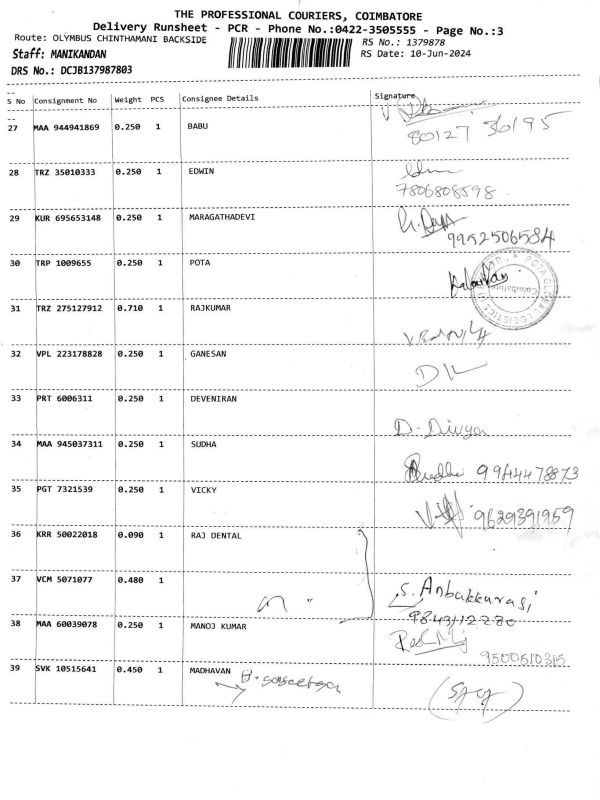 THE PROFESSIONAL COURIERS, COIMBATORE
Delivery Runsheet - PCR - Phone No.:0422-3505555 - Page No.:3
Route: OLYMBUS CHINTHAMANI BACKSIDE RS No.: 1379878
Staff: MANIKANDAN RS Date: 10-Jun-2024
DRS No.: DCJB137987803
S No Consignment No Weight PCS Consignee Details Signature
27 MAA 944941869 0.250 1 BABU
80127 36195
28 TRZ 35010333 0.250 1 EDWIN
7806808598
29 KUR 695653148 0.250 1 MARAGATHADEVI
9952506584
30 TRP 1009655 0.250 1 POTA
POTA GLOBAL LOGISTICS
Coimbatore
31 TRZ 275127912 0.710 1 RAJKUMAR
32 VPL 223178828 0.250 1 GANESAN
33 PRT 6006311 0.250 1 DEVENIRAN
D. Divya
34 MAA 945037311 0.250 1 SUDHA
Sudha 9944478873
35 PGT 7321539 0.250 1 VICKY
9629391959
36 KRR 50022018 0.090 1 RAJ DENTAL
37 VCM 5071077 0.480 1
S. Anbukkarasi
9843112280
38 MAA 60039078 0.250 1 MANOJ KUMAR
9500610315
39 SVK 10515641 0.450 1 MADHAVAN